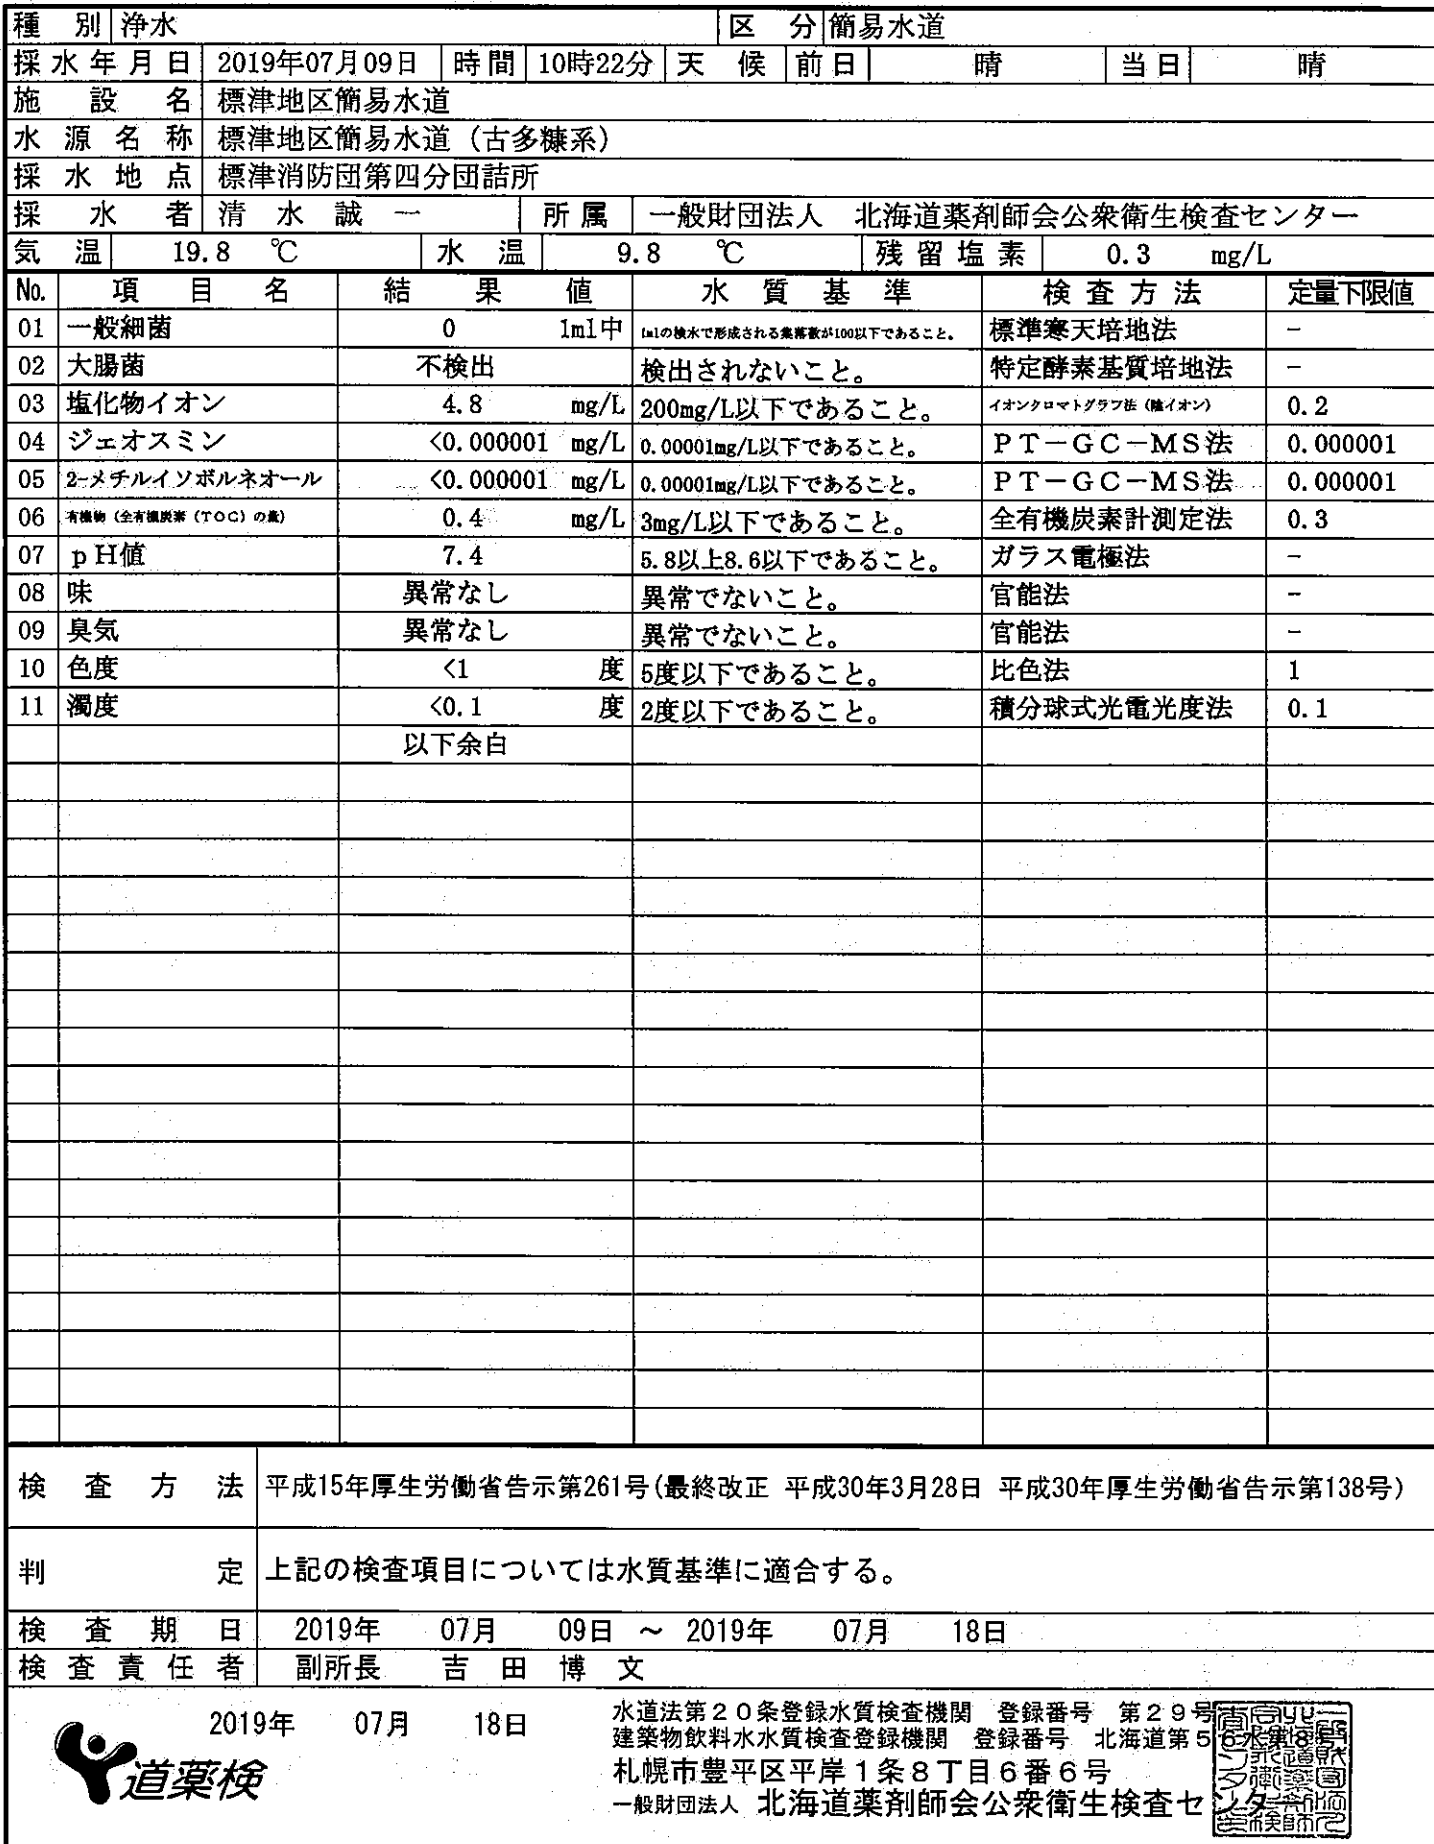 種別 浄水 区分 簡易水道
採水年月日 2019年07月09日 時間 10時22分 天候 前日 晴 当日 晴
施設名 標津地区簡易水道
水源名称 標津地区簡易水道（古多糠系）
採水地点 標津消防団第四分団詰所
採水者 清水誠一 所属 一般財団法人 北海道薬剤師会公衆衛生検査センター
気温 19.8 ℃ 水温 9.8 ℃ 残留塩素 0.3 mg/L
No. 項目名 結果値 水質基準 検査方法 定量下限値
01 一般細菌 0 1ml中 1mlの検水で形成される集落数が100以下であること。 標準寒天培地法 －
02 大腸菌 不検出 検出されないこと。 特定酵素基質培地法 －
03 塩化物イオン 4.8 mg/L 200mg/L以下であること。 イオンクロマトグラフ法（陰イオン） 0.2
04 ジェオスミン <0.000001 mg/L 0.00001mg/L以下であること。 ＰＴ－ＧＣ－ＭＳ法 0.000001
05 2-メチルイソボルネオール <0.000001 mg/L 0.00001mg/L以下であること。 ＰＴ－ＧＣ－ＭＳ法 0.000001
06 有機物（全有機炭素（ＴＯＣ）の量） 0.4 mg/L 3mg/L以下であること。 全有機炭素計測定法 0.3
07 ｐＨ値 7.4 5.8以上8.6以下であること。 ガラス電極法 －
08 味 異常なし 異常でないこと。 官能法 －
09 臭気 異常なし 異常でないこと。 官能法 －
10 色度 <1 度 5度以下であること。 比色法 1
11 濁度 <0.1 度 2度以下であること。 積分球式光電光度法 0.1
以下余白
検査方法 平成15年厚生労働省告示第261号(最終改正 平成30年3月28日 平成30年厚生労働省告示第138号)
判定 上記の検査項目については水質基準に適合する。
検査期日 2019年 07月 09日 ～ 2019年 07月 18日
検査責任者 副所長 吉田博文
2019年 07月 18日
道薬検
水道法第２０条登録水質検査機関 登録番号 第２９号
建築物飲料水水質検査登録機関 登録番号 北海道第５６水第8号
札幌市豊平区平岸１条８丁目６番６号
一般財団法人 北海道薬剤師会公衆衛生検査センター